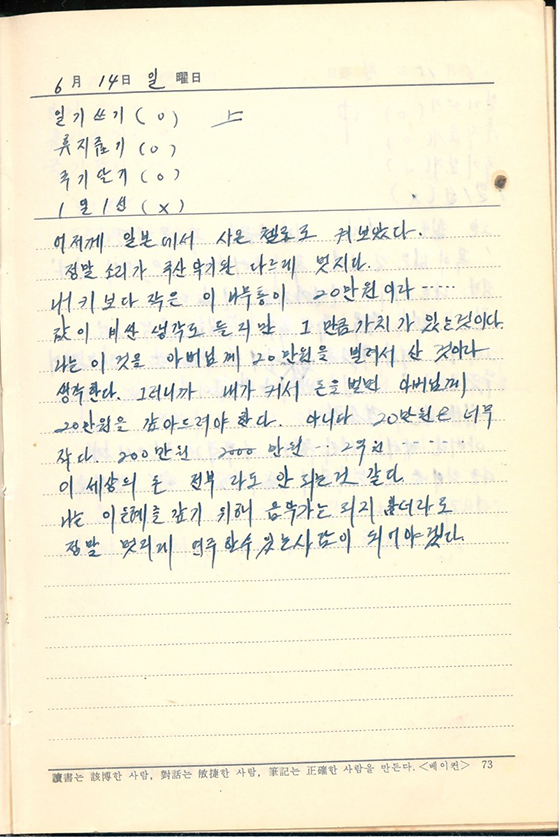 6月 14日 일 曜日
일기쓰기 (o) 上
휴지줍기 (o)
국기달기 (o)
1일1선 (x)
어저께 일본에서 사온 첼로로 켜보았다.
정말 소리가 국산악기완 다르게 멋지다.
내 키보다 작은 이 나무통이 20만원이라‥‥
값이 비싼 생각도 들지만 그 만큼 가치가 있는것이다.
나는 이 것을 아버님께 20만원을 빌려서 산 것이라
생각한다. 그러니까 내가 커서 돈을 벌면 아버님께
20만원을 갚아드려야 한다. 아니다 20만원은 너무
작다. 200만원 2000 만원 2억원
이 세상의 돈 전부 라도 안 되는것 같다.
나는 이은혜를 갚기 위해 음악가는 되지 못더라도
정말 멋지게 연주할수 있는사람이 되어야겠다.
讀書는 該博한 사람, 對話는 敏捷한 사람, 筆記는 正確한 사람을 만든다.<베이컨> 73